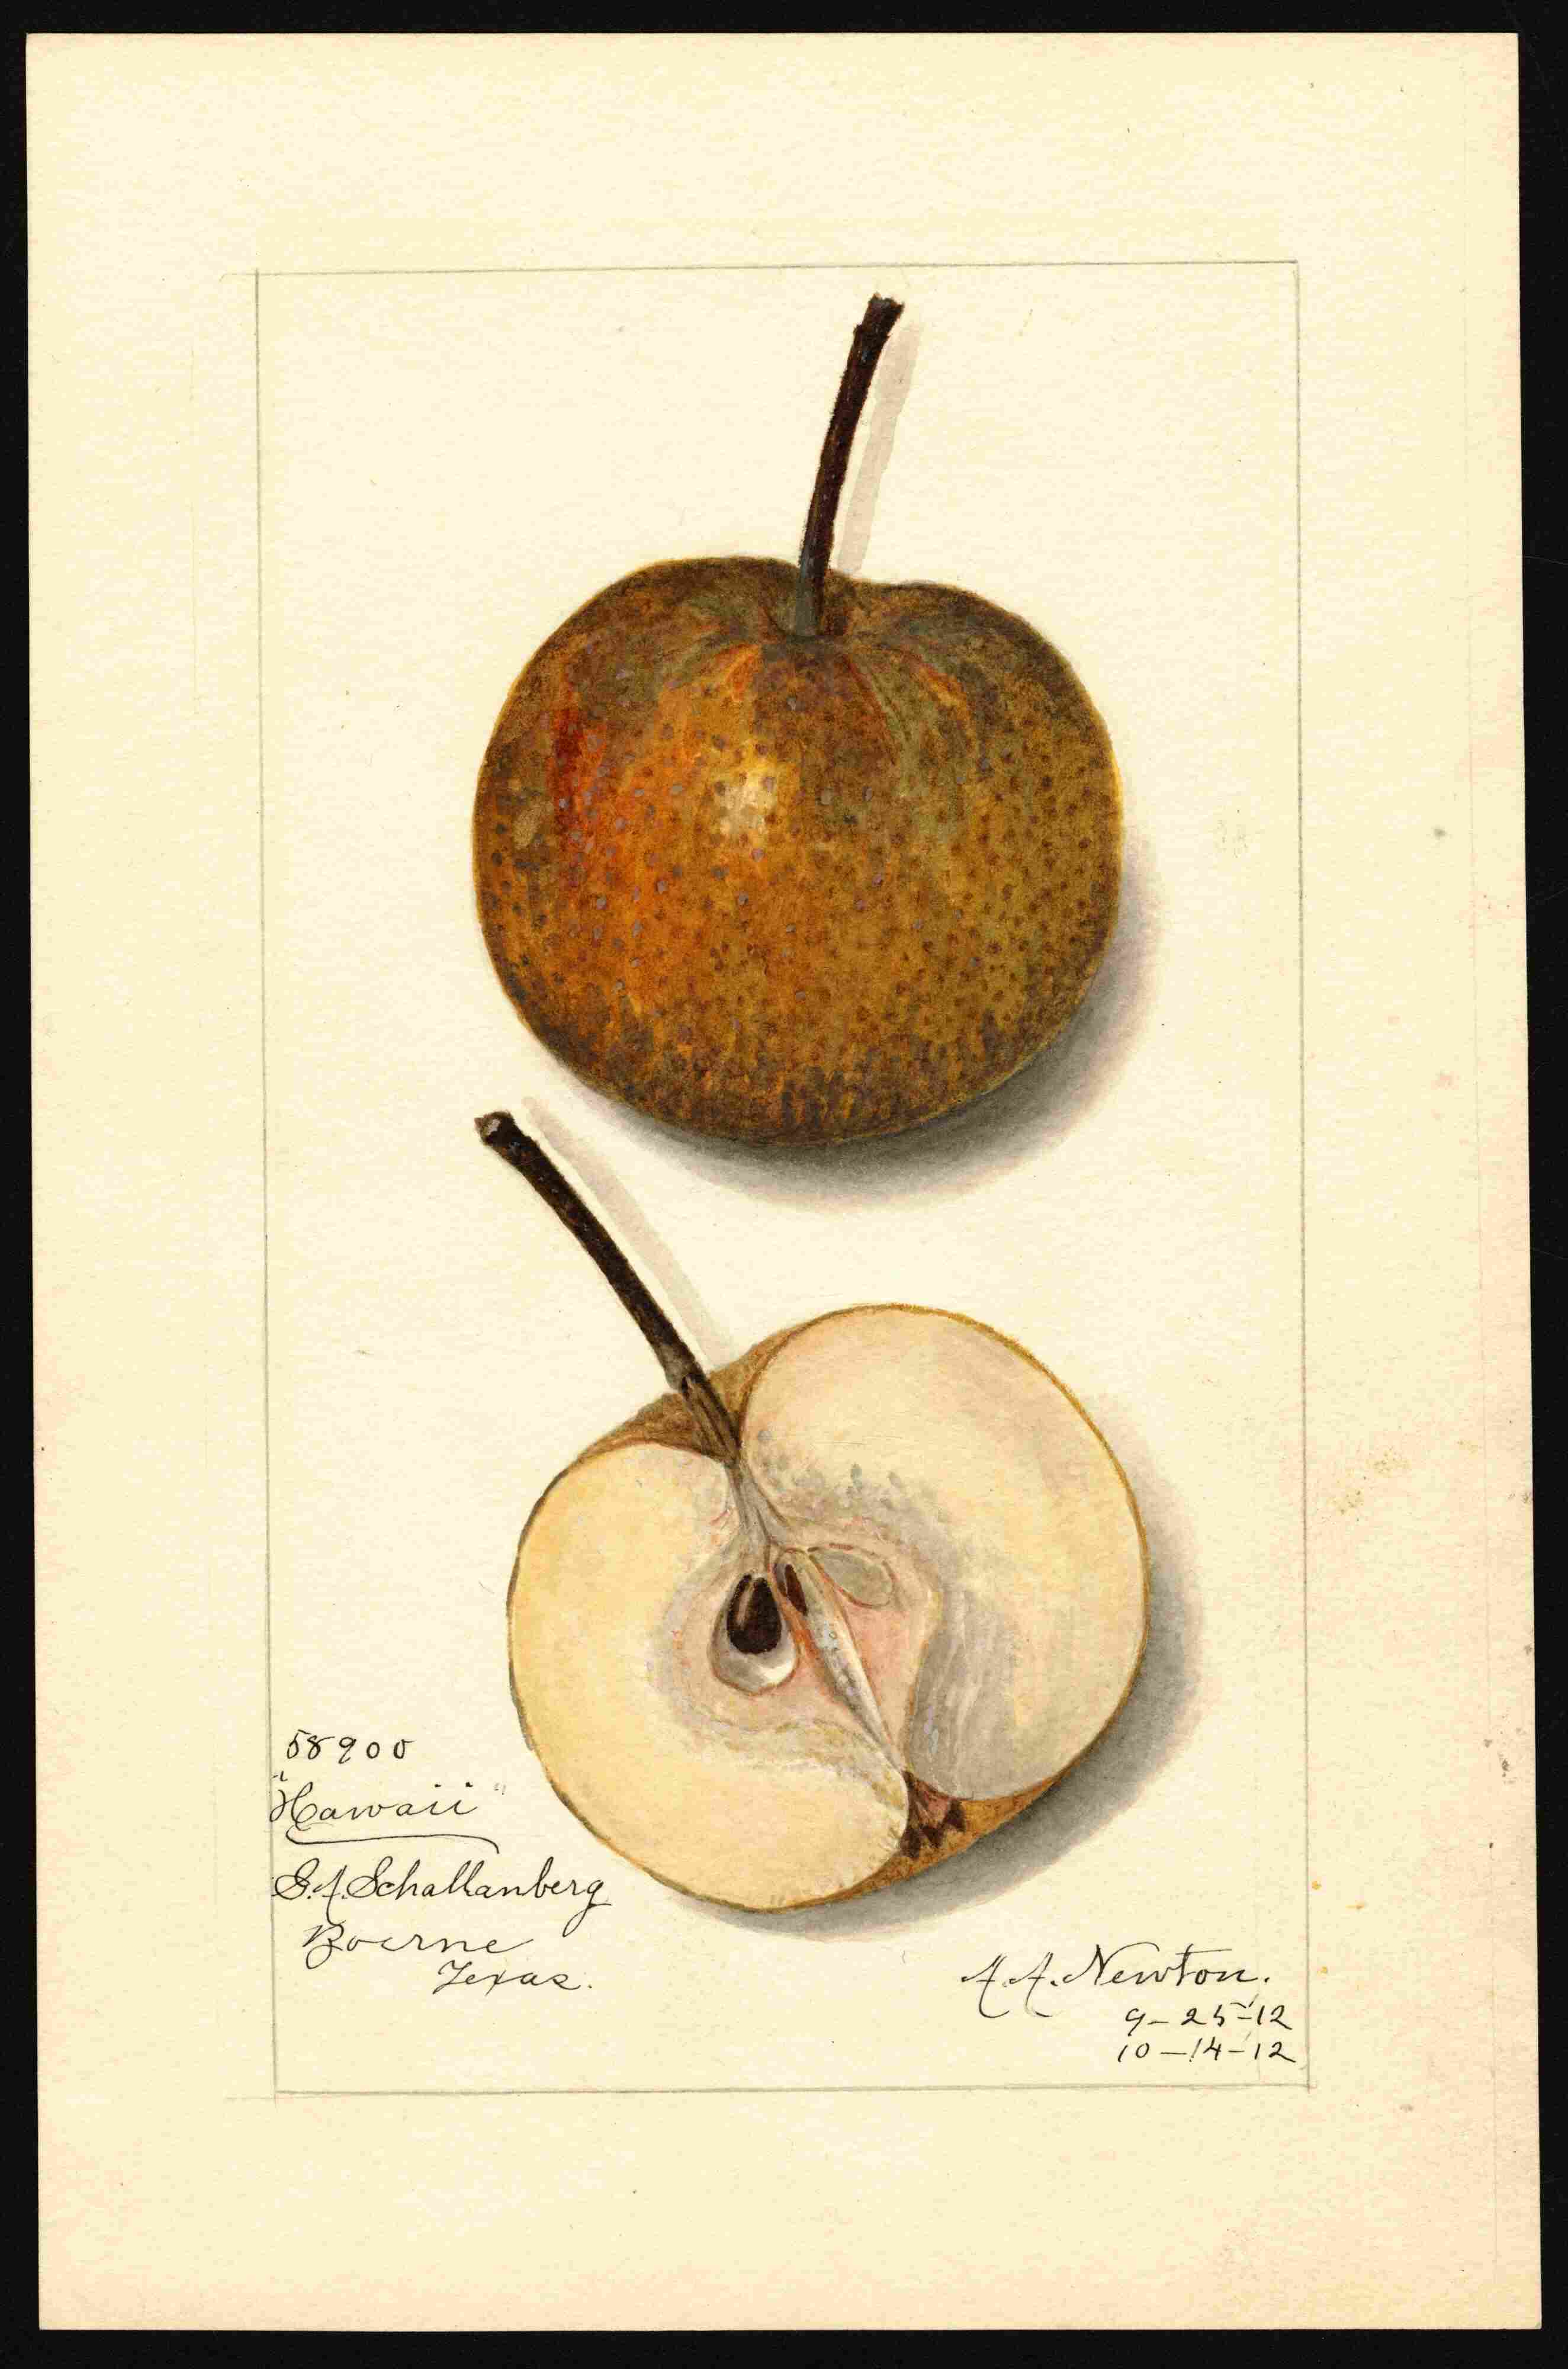 58900
"Hawaii"
G.A. Schattanberg
Boerne
Texas.
A.A. Newton.
9-25-12
10-14-12